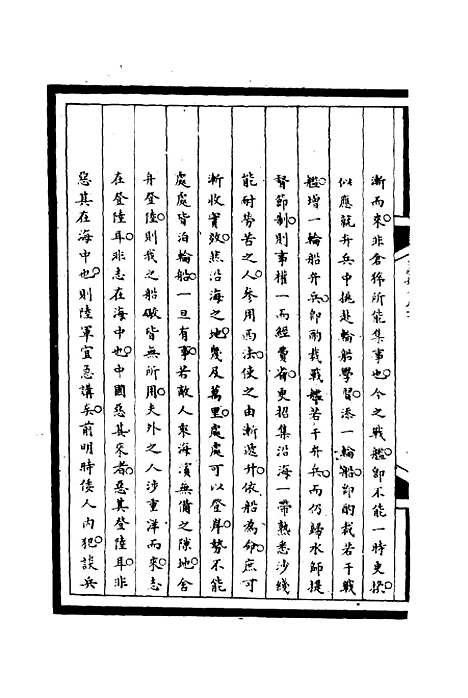 漸而來非倉猝所能集事也今之戰艦卽不能一時更換
似應就弁兵中挑赴輪船學習添一輪船卽酌裁若干戰
艦增一輪船弁兵卽酌裁戰艦若干弁兵而仍歸水師提
督節制則事權一而經費省更招集沿海一帶熟悉沙綫
能耐勞苦之人參用西法使之由漸遞升依船為命庶可
漸收實效然沿海之地幾及萬里處處可以登岸勢不能
處處皆泊輪船一旦有事若敵人乘海濱無備之隙地舍
舟登陸則我之船礮皆無所用夫外之人涉重洋而來志
在登陸耳非志在海中也中國惡其來者惡其登陸耳非
惡其在海中也則陸軍宜急講矣前明時倭人內犯談兵